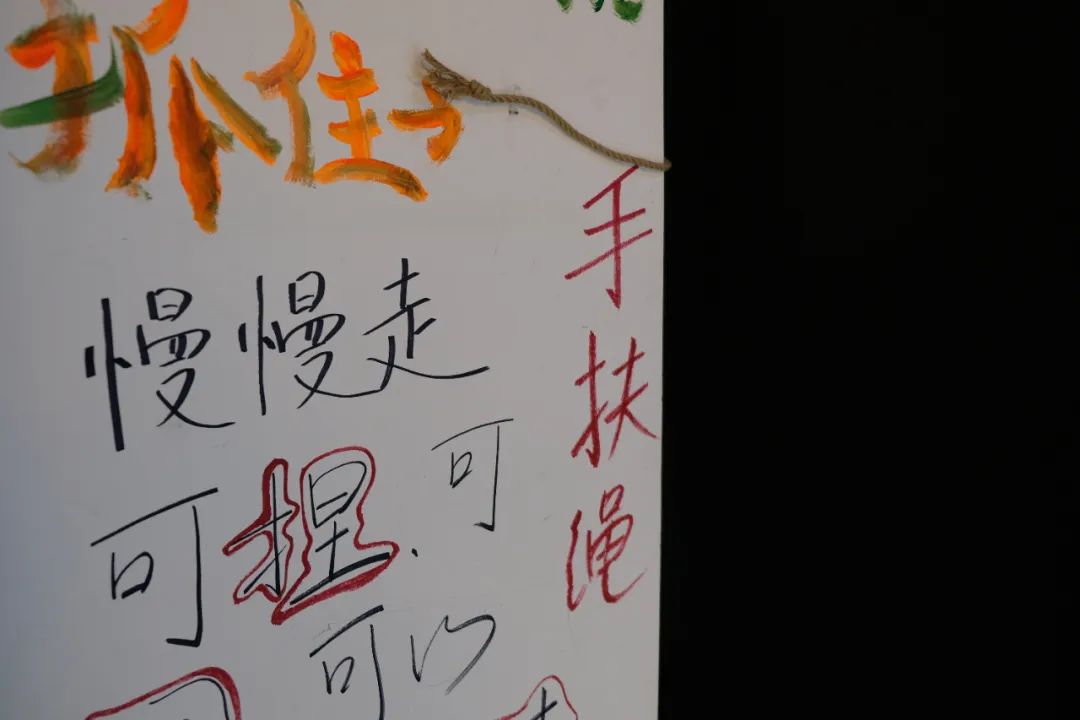 抓住
慢慢走
可捏、可
可以
手扶绳